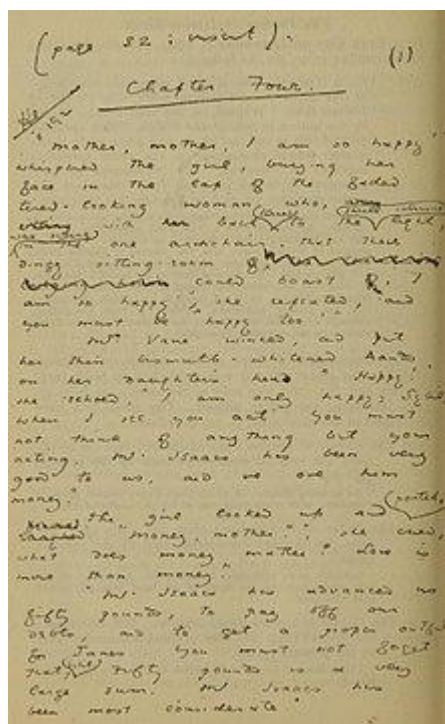 (page 32: insert).
(1)
Chapter Four.
"Mother, mother, I am so happy"
whispered the girl, burying her
face in the lap of the faded
tired-looking woman who,
with her back turned to the light,
one armchair that their
dingy sitting-room
could boast of. "I
am so happy", she repeated, "and
you must be happy too."
Mrs Vane winced, and put
her thin bismuth-whitened hands
on her daughter's head "Happy!"
she echoed, "I am only happy, Sybil
when I see you act. You must
not think of anything but your
acting. Mr Isaacs has been very
good to us, and we owe him
money."
The girl looked up and pouted
"money, mother?", she cried,
"what does money matter? Love is
more than money."
"Mr Isaacs has advanced us
fifty pounds, to pay off our
debts, and to get a proper outfit
for James You must not forget
that, Fifty pounds is a very
large sum. Mr Isaacs has
been most considerate"